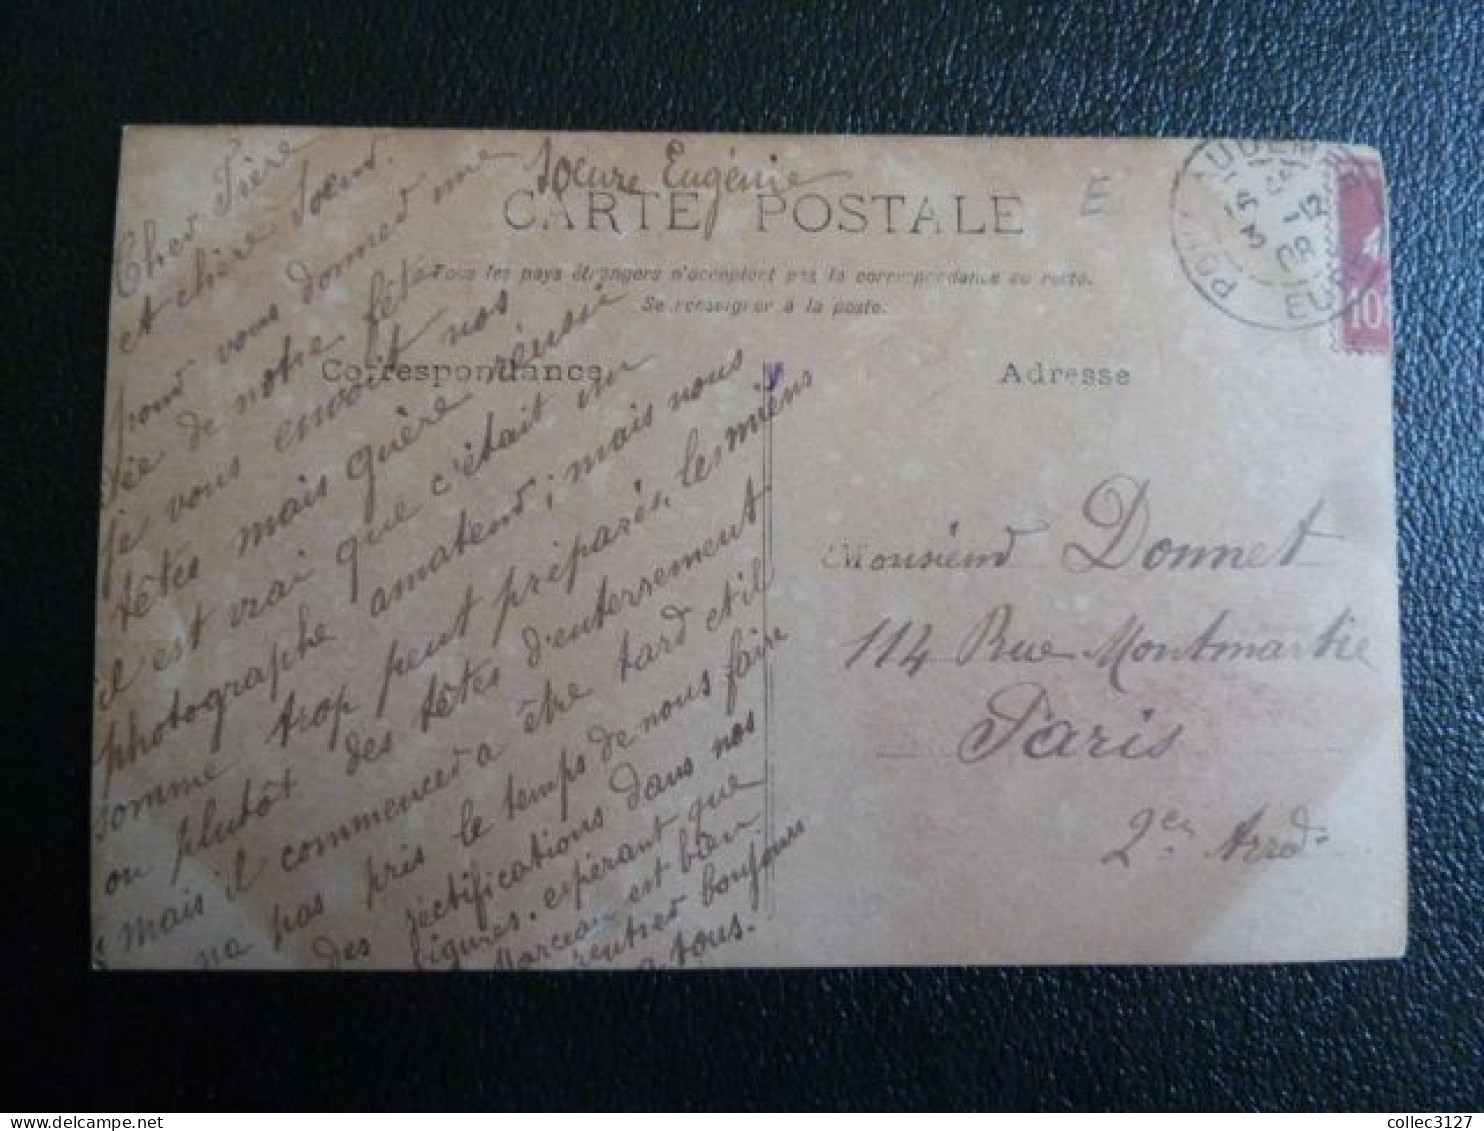 Cher Frère
et chère Soeur.
pour vous donner une
idée de notre fête
je vous envoit nos
têtes mais guère réussi
il est vrai que c'était un
photographe amateur; mais nous
somme trop peut préparés, les miens
ou plutôt des têtes d'enterrement
mais il commencer a être tard et il
na pas pris le temps de nous faire
des réctifications dans nos
figures. espérant que
Marceau est bien
rentrer bonjours
a tous.
Soeure Eugénie
CARTE POSTALE
E
Tous les pays étrangers n'acceptent pas la correspondance au recto.
Se renseigner à la poste.
Correspondance
Adresse
Monsieur Donnet
114 Rue Montmartre
Paris
2em Arrd
PONT AUDEMER
3 12
08
EURE
10
delcampe.net
collec3127